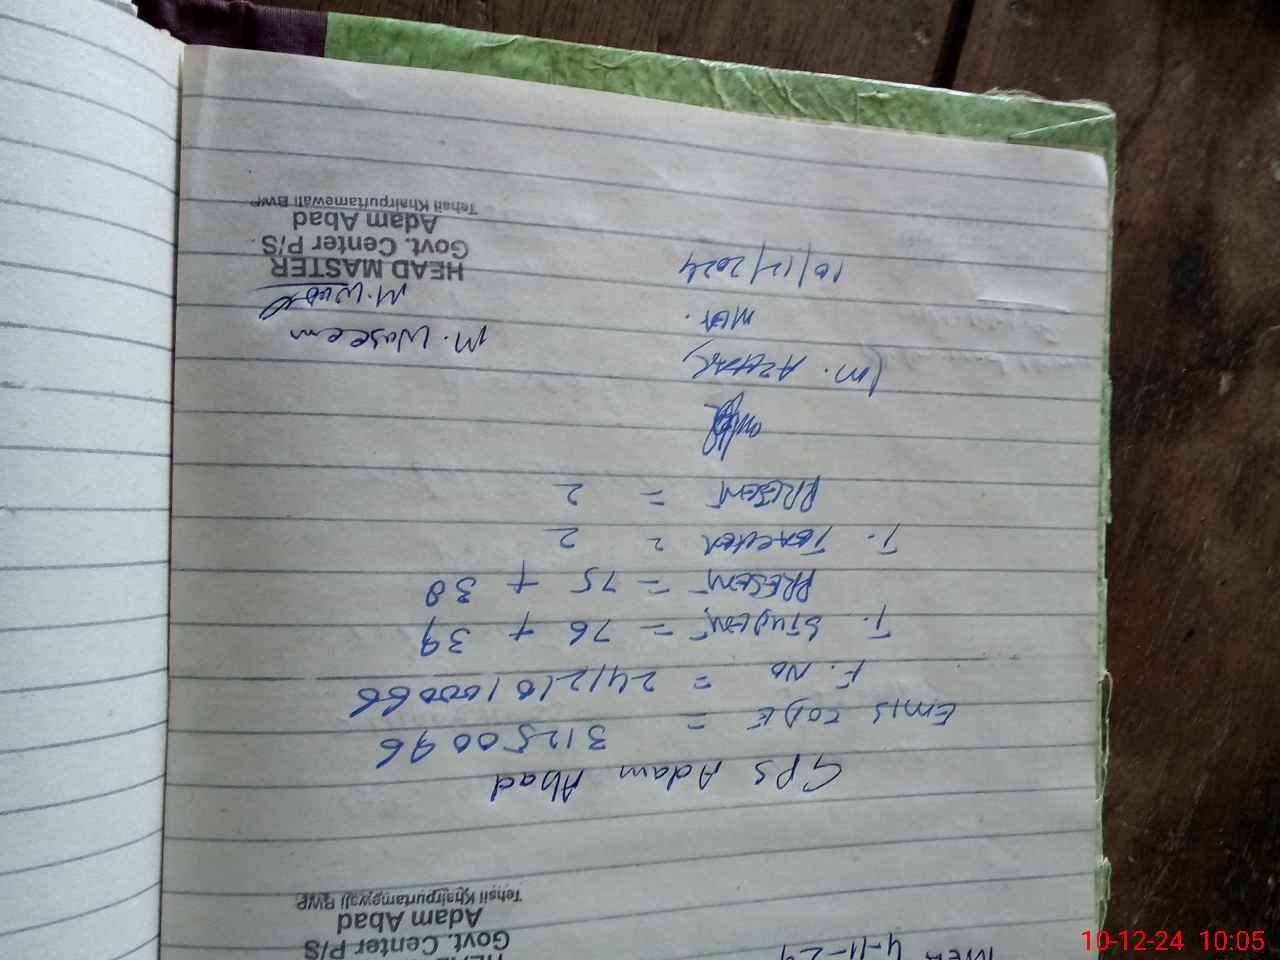 MEA 4-11-24
Govt. Center P/S
Adam Abad
Tehsil Khairpurtamewali BWP
GPS Adam Abad
Emis CODE = 31250096
F. NO = 241210100066
T. STUDENT = 76 + 39
PRESENT = 75 + 38
T. TEACHER = 2
PRESENT = 2
(M. AZHAR)
MEA.
10/12/2024
M. Waseem
HEAD MASTER
Govt. Center P/S
Adam Abad
Tehsil Khairpurtamewali BWP
10-12-24 10:05